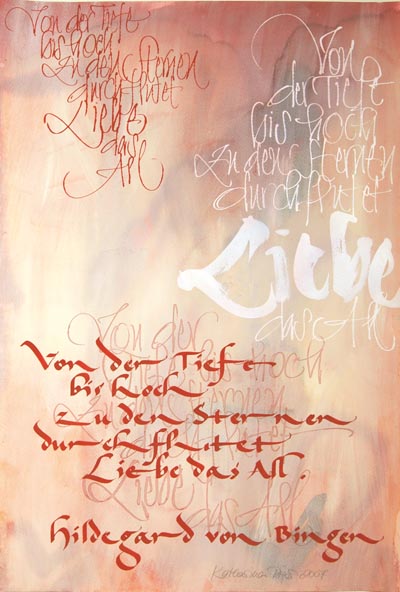 Von der Tiefe
bis hoch
zu den Sternen
durchflutet
Liebe
das
All
Von
der Tiefe
bis hoch
zu den Sternen
durchflutet
Liebe
das All
Von der
bis hoch
Liebe
das All
Von der Tiefe
bis hoch
zu den Sternen
durchflutet
Liebe das All.
Hildegard von Bingen
2007